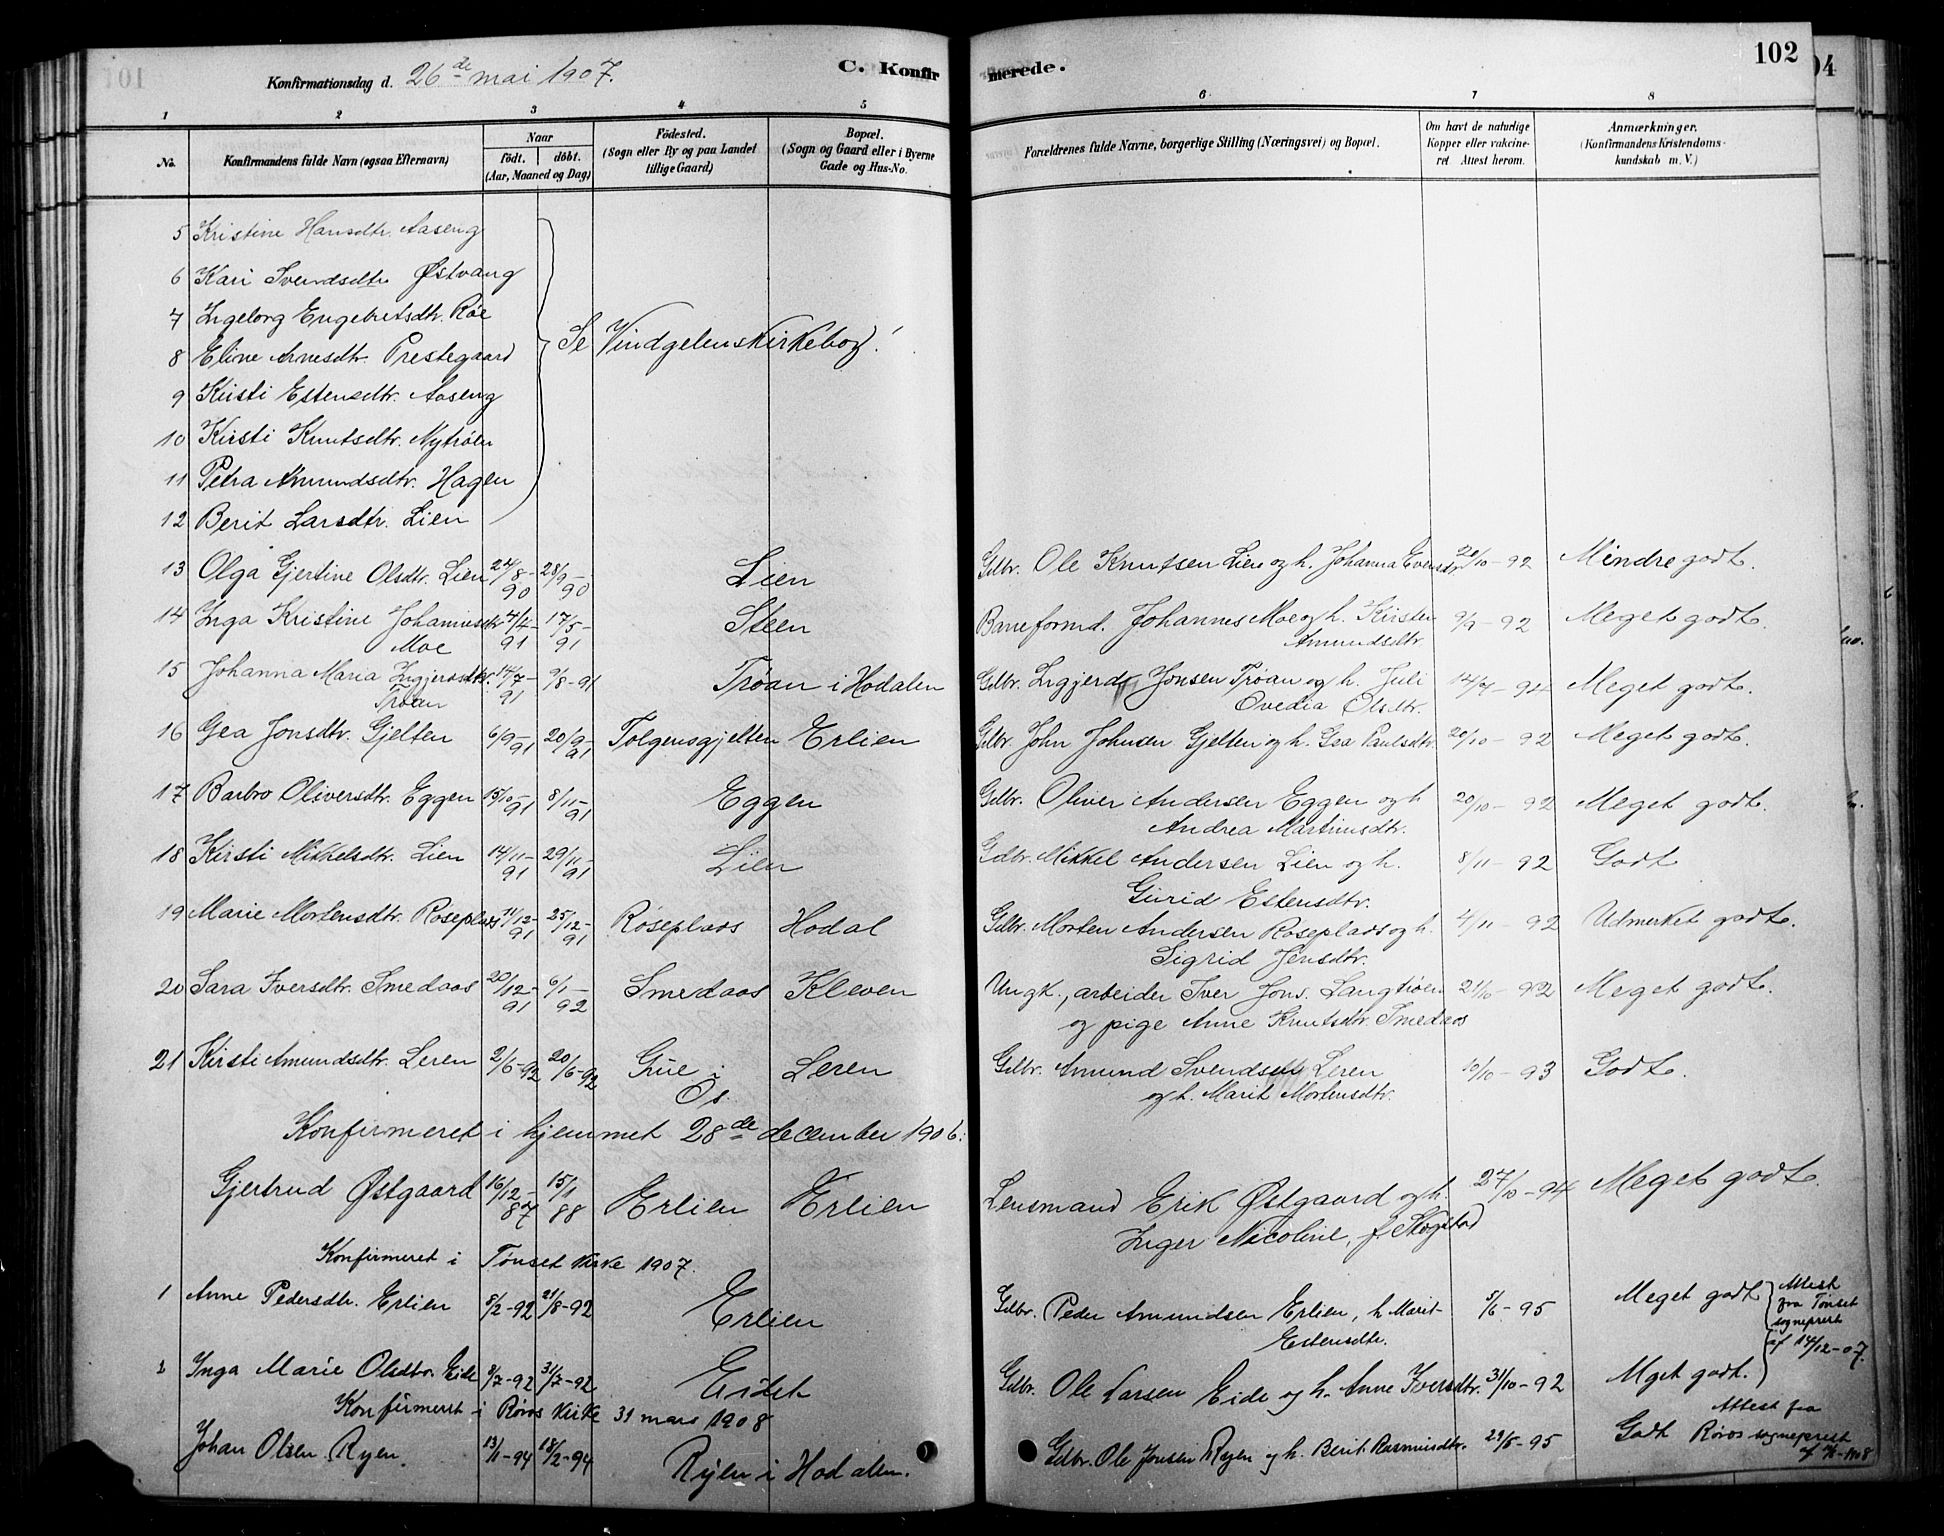 Konfirmationsdag d. 26de mai 1907.
C. Konfirmerede.
102
104
1 2 3 4 5 6 7 8
No.
Konfirmandens fulde Navn (ogsaa Efternavn)
Naar
födt. döbt.
(Aar, Maaned og Dag)
Födested.
(Sogn eller By og paa Landet
tillige Gaard)
Bopæl.
(Sogn og Gaard eller i Byerne
Gade og Hus-No.
Forældrenes fulde Navne, borgerlige Stilling (Næringsvei) og Bopæl.
Om havt de naturlige
Kopper eller vakcine-
ret Attest herom.
Anmærkninger.
(Konfirmandens Kristendoms-
kundskab m. V.)
5 Kristine Hansdtr. Aaseng
6 Kari Svendsdtr Østvang
7 Ingeborg Engebretsdtr. Røe
8 Eline Arnesdtr. Prestegaard
Se Vindgelens kirkebog!
9 Kirsti Estensdtr. Aaseng
10 Kirsti Knutsdtr. Nytrøen
11 Petra Amundsdtr. Hagen
12 Berit Larsdtr. Lien
13 Olga Gjertine Olsdtr. Lien 24/8-90 28/9-90 Lien Gdbr. Ole Knutsen Lien og h. Johanna Evensdtr 20/10-92 Mindre godt.
14 Inga Kristine Johannesdtr 4/4-91 17/5-91 Steen Baneformd. Johannes Moe og h. Kirsten 9/9-92 Meget godt.
Moe Amundsdtr.
15 Johanna Maria Ingjerdsdtr. 14/7-91 9/8-91 Trøan i Hodalen Gdbr. Ingjerd Jonsen Trøan og h. Juli 14/7-94 Meget godt.
Trøan Ovedia Olsdtr.
16 Gea Jonsdtr. Gjelten 6/9-91 20/9-91 Tolgensgjelten Erlien Gdbr. John Johnsen Gjelten og h. Gea Paulsdtr. 20/10-92 Meget godt.
17 Barbro Oliversdtr. Eggen 15/10-91 8/11-91 Eggen Gdbr. Oliver Andersen Eggen og h 20/10-92 Meget godt.
Andrea Martinusdtr.
18 Kirsti Mikkelsdtr. Lien 14/11-91 29/11-91 Lien Gdbr. Mikkel Andersen Lien og h. 8/11-92 Godt
Gurid Estensdtr.
19 Marie Mortensdtr. Røseplads 11/12-91 25/12-91 Røseplads Hodal Gdbr. Morten Andersen Røseplads og h. 4/11-92 Udmerket godt.
Sigrid Jensdtr.
20 Sara Iversdtr. Smedaas 20/12-91 6/1-92 Smedaas Kleven Ungk., arbeider Iver Jons. Langtrøen 21/10-92 Meget godt.
og pige Anne Knutsdtr. Smedaas
21 Kirsti Amundsdtr. Leren 2/6-92 20/6-92 Grue i Leren Gdbr. Amund Svendsen Leren 10/10-93 Godt.
Os. og h. Marit Mortensdtr.
Konfirmeret i hjemmet 28de december 1906:
Gjertrud Østgaard 16/12-87 15/1 88 Erlien Erlien Lensmand Erik Østgaard og h. 27/10-94 Meget godt.
Inger Nicoline, f. Skogstad
Konfirmeret i Tønset kirke 1907.
1 Anne Pedersdtr. Erlien 8/2-92 21/8-92 Erlien Gdbr. Peder Amundsen Erlien, h Marit 5/6-95 Meget godt
Estensdtr.
Attest
fra Tønset
sogneprest
af 14/12-07.
2 Inga Marie Olsdtr. Eide 8/7-92 31/7-92 Eidet Gdbr. Ole Larsen Eide og h. Anne Iversdtr. 31/10-92 Mget godt.
Konfirmeret i Røros kirke 31 mars 1908
Johan Olsen Ryen. 13/1-94 18/2-94 Ryen i Hodalen. Gdbr. Ole Jonsen Ryen og h. Berit Rasmusdtr. 29/5-95 Godt
Attest fra
Røros sogneprest